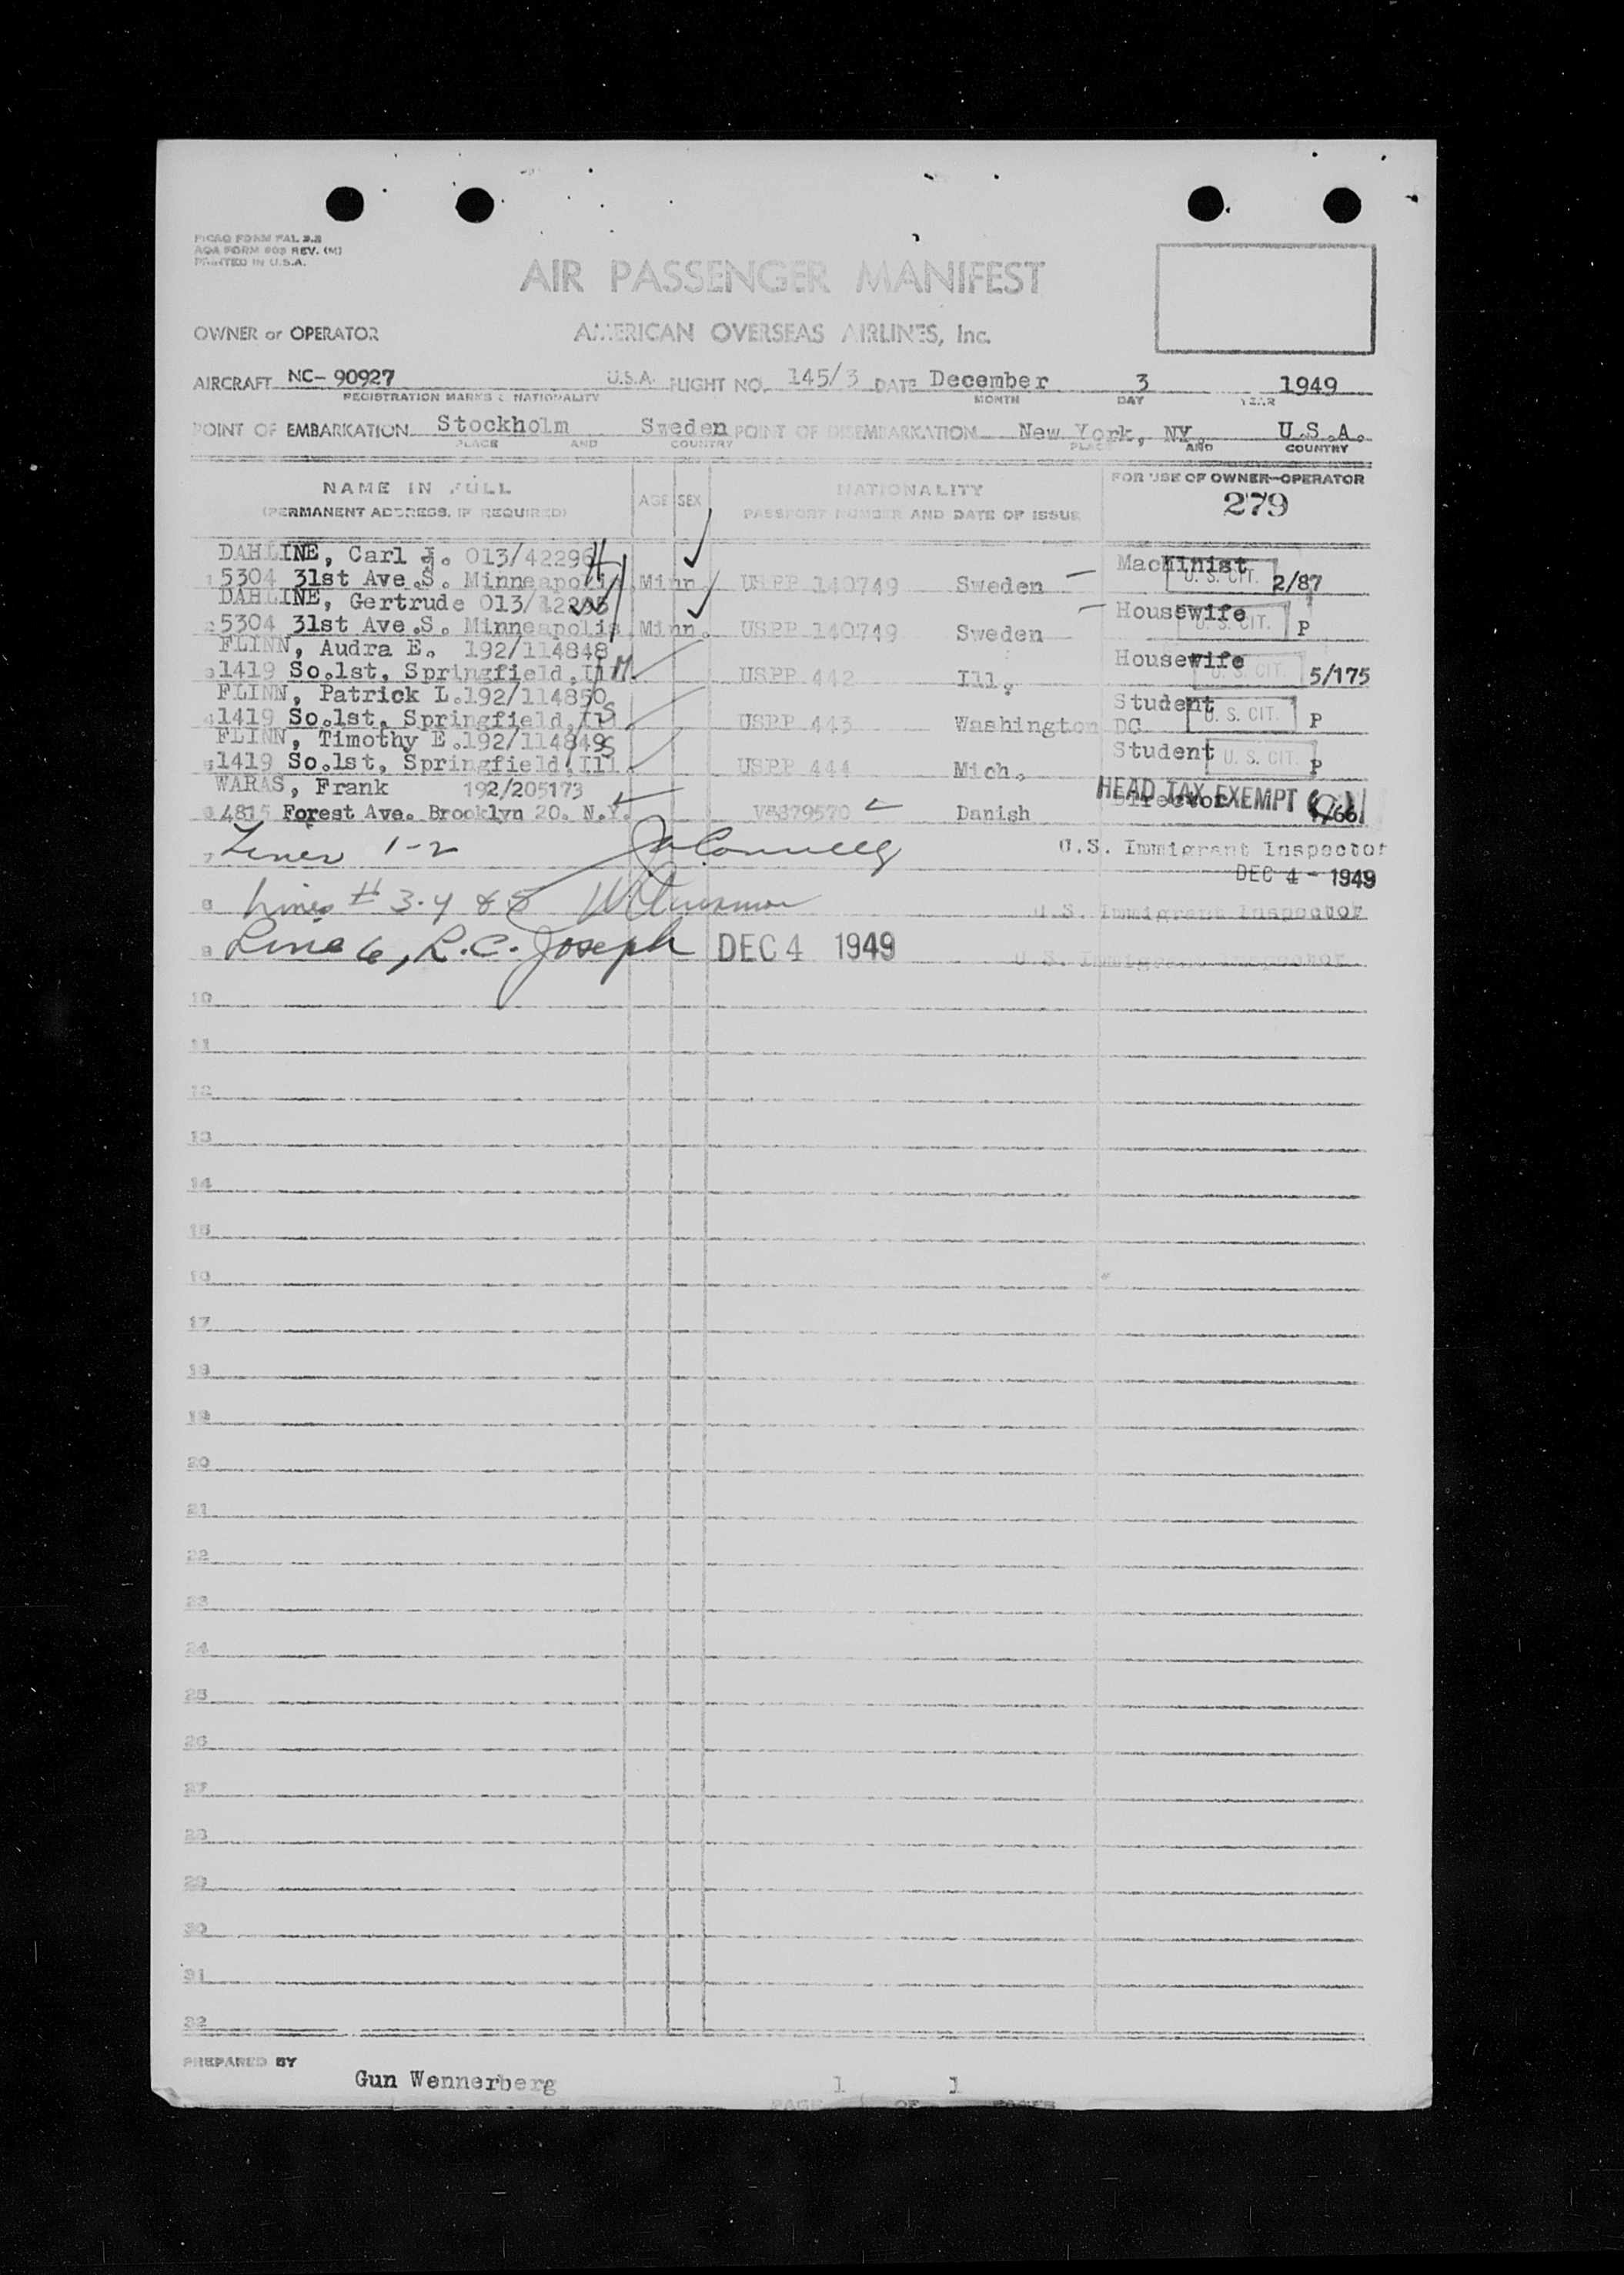 PICAO FORM FAL 2.2
AOA FORM 803 REV. (M)
PRINTED IN U.S.A.
AIR PASSENGER MANIFEST
OWNER or OPERATOR AMERICAN OVERSEAS AIRLINES, Inc.
AIRCRAFT NC- 90927 U.S.A. FLIGHT NO. 145/3 DATE December 3 1949
REGISTRATION MARKS & NATIONALITY MONTH DAY YEAR
POINT OF EMBARKATION Stockholm Sweden POINT OF DISEMBARKATION New York, NY. U.S.A.
PLACE AND COUNTRY PLACE AND COUNTRY
NAME IN FULL AGE SEX NATIONALITY FOR USE OF OWNER-OPERATOR
(PERMANENT ADDRESS, IF REQUIRED) PASSPORT NUMBER AND DATE OF ISSUE 279
DAHLINE, Carl J. 013/42296 Machinist
1 5304 31st Ave.S. Minneapolis Minn. USPP 140749 Sweden U. S. CIT. 2/87
DAHLINE, Gertrude 013/42295 Housewife
2 5304 31st Ave.S. Minneapolis Minn. USPP 140749 Sweden U. S. CIT. P
FLINN, Audra E. 192/114848 Housewife
3 1419 So.1st, Springfield, Ill M USPP 442 Ill. U. S. CIT. 5/175
FLINN, Patrick L.192/114850 Student
4 1419 So.1st, Springfield, Ill S USPP 443 Washington DC U. S. CIT. P
FLINN, Timothy E.192/114849 S Student
5 1419 So.1st, Springfield, Ill. USPP 444 Mich. U. S. CIT. P
WARAS, Frank 192/205173 HEAD TAX EXEMPT Director
6 4815 Forest Ave. Brooklyn 20. N.Y. V#379570 Danish 1/66
7 Lines 1-2 U.S. Immigrant Inspector
DEC 4 - 1949
8 Lines # 3.4 & 5 U.S. Immigrant Inspector
9 Line 6, R.C. Joseph DEC 4 1949 U.S. Immigrant Inspector
10
11
12
13
14
15
16
17
18
19
20
21
22
23
24
25
26
27
28
29
30
31
32
PREPARED BY
Gun Wennerberg 1 1
PAGE OF PAGES